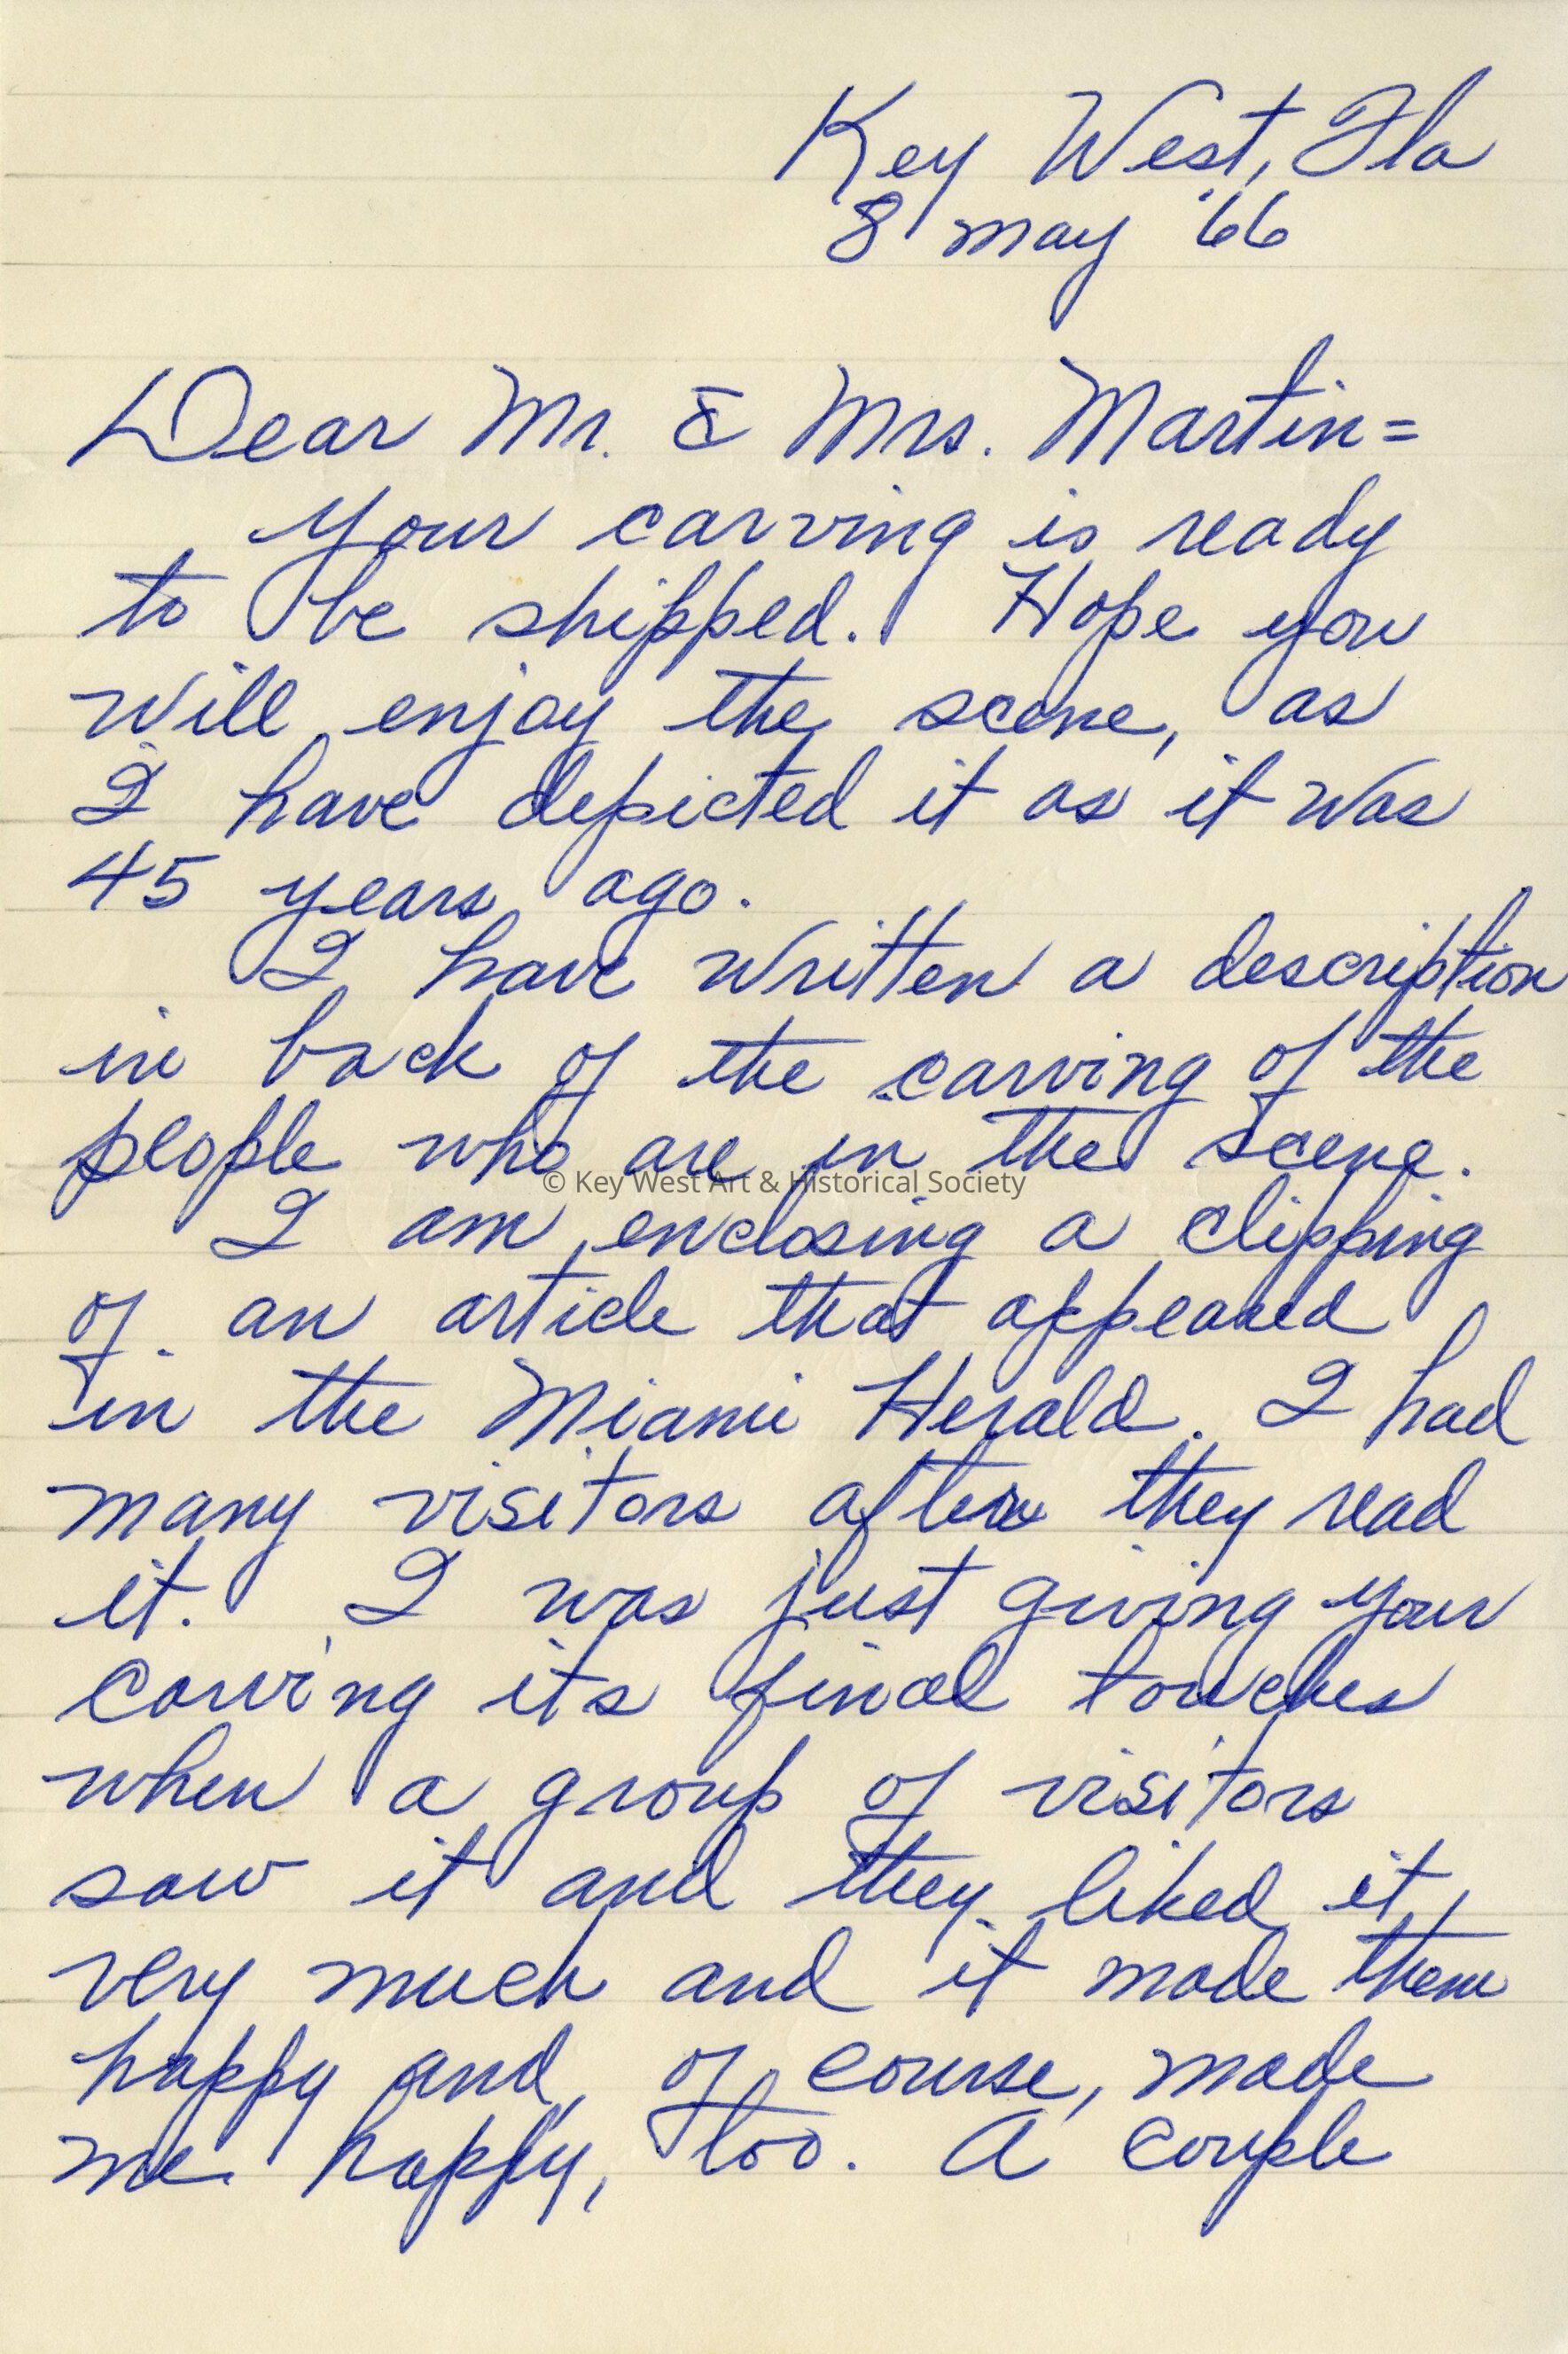 Key West, Fla
8 May '66
Dear Mr. & Mrs. Martin=
Your carving is ready
to be shipped. Hope you
will enjoy the scene, as
I have depicted it as it was
45 years ago.
I have written a description
in back of the carving of the
people who are in the scene.
© Key West Art & Historical Society
I am enclosing a clipping
of an article that appeared
in the Miami Herald. I had
many visitors after they read
it. I was just giving your
carving its final touches
when a group of visitors
saw it and they liked it,
very much and it made them
happy and, of course, made
me happy, too. A couple